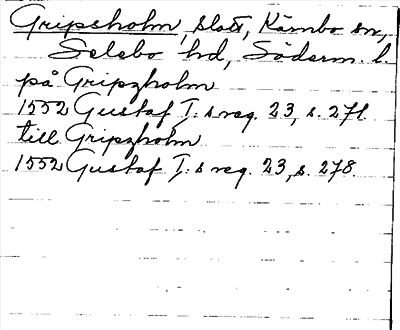 Gripsholm, slott, Kärnbo sn,
Selebo hd, Söderm. l.
på Gripzholm
1552 Gustaf I:s reg. 23, s. 271.
till Gripzholm
1552 Gustaf I:s reg. 23, s. 278.